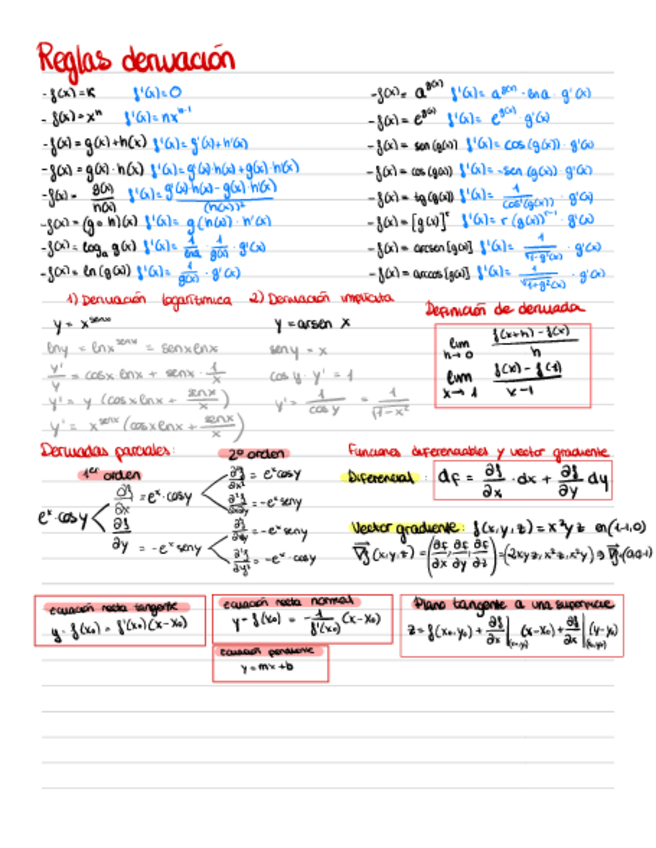 Reglas derivación
- f(x) = K f'(x) = 0
- f(x) = xⁿ f'(x) = nxⁿ⁻¹
- f(x) = g(x) + h(x) f'(x) = g'(x) + h'(x)
- f(x) = g(x) · h(x) f'(x) = g'(x) · h(x) + g(x) · h'(x)
- f(x) = g(x)/h(x) f'(x) = (g'(x) · h(x) - g(x) · h'(x))/(h(x))²
- f(x) = (g ∘ h)(x) f'(x) = g'(h(x)) · h'(x)
- f(x) = logₐ g(x) f'(x) = 1/lna · 1/g(x) · g'(x)
- f(x) = ln(g(x)) f'(x) = 1/g(x) · g'(x)
- f(x) = a^g(x) f'(x) = a^g(x) · lna · g'(x)
- f(x) = e^g(x) f'(x) = e^g(x) · g'(x)
- f(x) = sen(g(x)) f'(x) = cos(g(x)) · g'(x)
- f(x) = cos(g(x)) f'(x) = -sen(g(x)) · g'(x)
- f(x) = tg(g(x)) f'(x) = 1/cos²(g(x)) · g'(x)
- f(x) = [g(x)]^r f'(x) = r(g(x))^r-1 · g'(x)
- f(x) = arcsen[g(x)] f'(x) = 1/√1-g²(x) · g'(x)
- f(x) = arccos[g(x)] f'(x) = 1/√1+g²(x) · g'(x)
1) Derivación logarítmica
y = x^senx
lny = lnx^senx = senxlnx
y'/y = cosx lnx + senx · 1/x
y' = y (cosxlnx + senx/x)
y' = x^senx (cosxlnx + senx/x)
2) Derivación implícita
y = arsen x
seny = x
cosy · y' = 1
y' = 1/cosy = 1/√1-x²
Definición de derivada
lim h→0 (f(x+h) - f(x))/h
lim x→1 (f(x) - f(1))/(x-1)
Derivadas parciales:
1er orden
2º orden
e^x·cosy
∂f/∂x = e^x·cosy
∂f/∂y = -e^x seny
= e^x cosy
= -e^x seny
= -e^x seny
= -e^x · cosy
Funciones diferenciables y vector gradiente
Diferencial: df = ∂f/∂x · dx + ∂f/∂y dy
Vector gradiente: f(x,y,z) = x²yz en (1,-1,0)
∇f(x,y,z) = (∂f/∂x, ∂f/∂y, ∂f/∂z) = (2xyz, x²z, x²y) ⇒ ∇f(0,0,-1)
ecuación recta tangente
y - f(x₀) = f'(x₀)(x-x₀)
ecuación recta normal
y - f(x₀) = -1/f'(x₀) (x-x₀)
ecuación pendiente
y = mx + b
Plano tangente a una superficie
z = f(x₀,y₀) + ∂f/∂x|(x₀,y₀) (x-x₀) + ∂f/∂x|(x₀,y₀) (y-y₀)